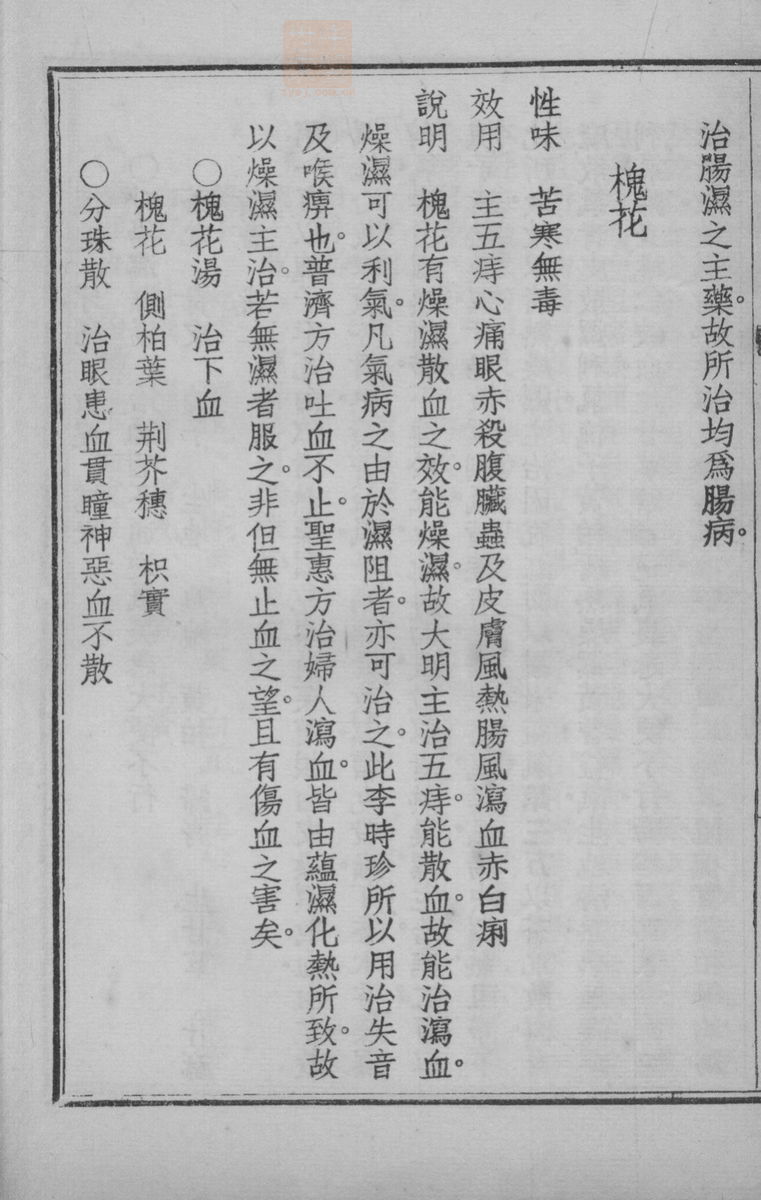 治腸濕之主藥。故所治均爲腸病。
槐花
性味　苦寒無毒
效用　主五痔心痛眼赤殺腹臟蟲及皮膚風熱腸風瀉血赤白痢
說明　槐花有燥濕散血之效。能燥濕。故大明主治五痔。能散血。故能治瀉血。
燥濕可以利氣。凡氣病之由於濕阻者。亦可治之。此李時珍所以用治失音
及喉痹也。普濟方治吐血不止。聖惠方治婦人瀉血。皆由蘊濕化熱所致。故
以燥濕主治。若無濕者服之。非但無止血之望。且有傷血之害矣。
〇槐花湯　治下血
槐花　側柏葉　荆芥穗　枳實
〇分珠散　治眼患血貫瞳神惡血不散